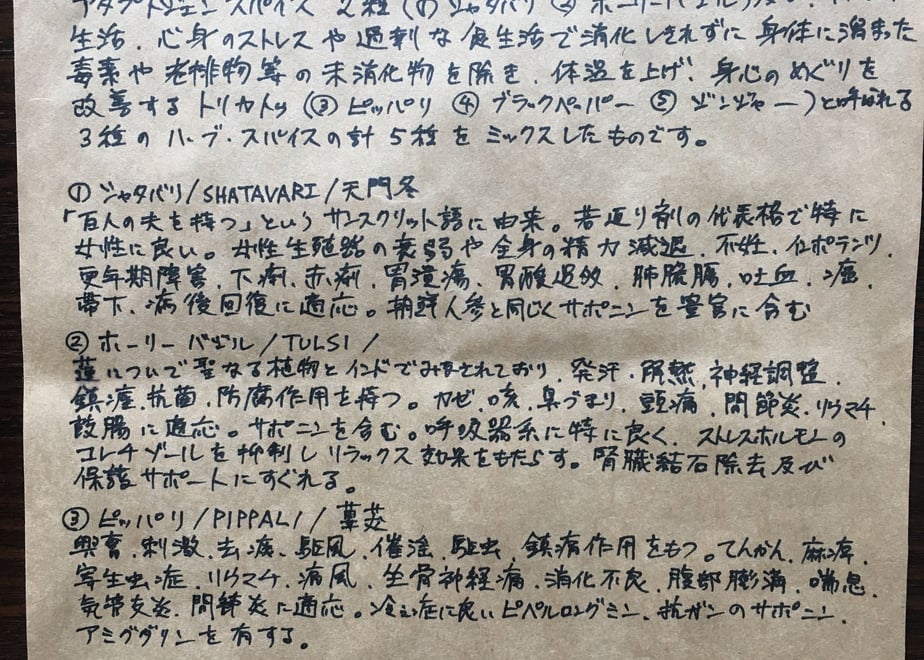 アダプトゲェン スパイス 2種 (① シャタバリ ② ホーリーバジル
生活、心身のストレスや過剰な食生活で消化しきれずに身体に溜まった
毒素や老排物等の未消化物を除き、体温を上げ、身心のめぐりを
改善するトリカトゥ (③ ピッパリ ④ ブラックペーパー ⑤ ジンジャー) と呼ばれる
3種のハーブ・スパイスの計5種をミックスしたものです。
① シャタバリ/SHATAVARI/天門冬
「百人の夫を持つ」というサンスクリット語に由来。若返り剤の代表格で特に
女性に良い。女性生殖器の衰弱や全身の精力減退、不妊、インポテンツ、
更年期障害、下痢、赤痢、胃潰瘍、胃酸過放、肺膿腸、吐血、癌、
帯下、病後回復に適応。朝鮮人参と同じくサポニンを豊富に含む
② ホーリーバジル/TULSI/
蓮についで聖なる植物とインドでみなされており、発汗・解熱、神経調整、
鎮痙、抗菌、防腐作用を持つ。カゼ、咳、鼻づまり、頭痛、関節炎、リウマチ
設腸に適応。サポニンを含む。呼吸器系に特に良く、ストレスホルモンの
コルチゾールを抑制しリラックス効果をもたらす。腎臓結石除去及び
保護サポートにすぐれる。
③ ピッパリ/PIPPALI/蓽茇
興奮、刺激、去痰、駆風、催淫、駆虫、鎮痛作用をもつ。てんかん、麻痺、
寄生虫症、リウマチ、痛風、坐骨神経痛、消化不良、腹部膨満、喘息、
気管支炎、関節炎に適応。冷え症に良いピペルロングミン、抗ガンのサポニン、
アミグダリンを有する。